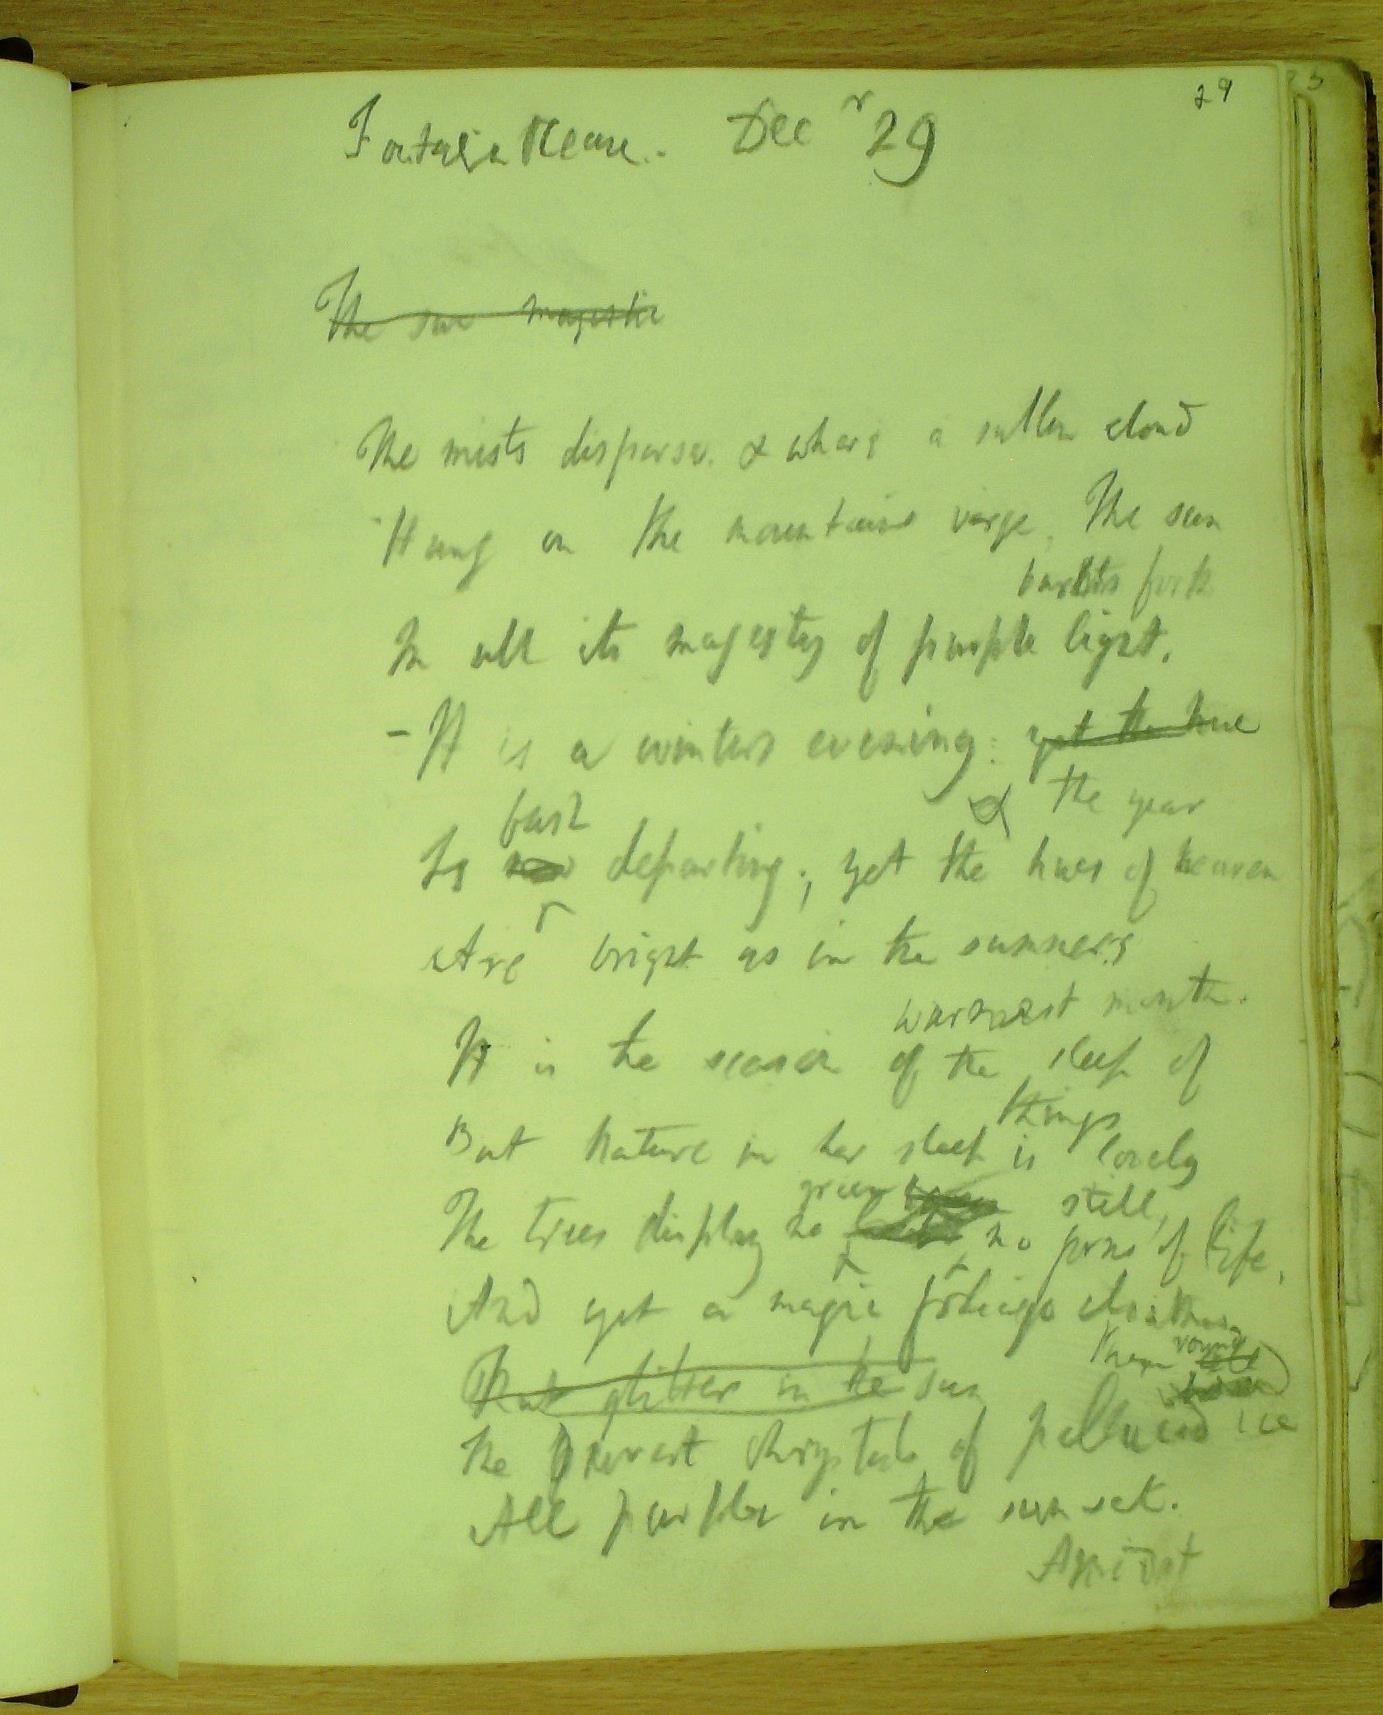 29
Fontainebleau. Decr 29
The sun majestic
The mists disperse. & where a sullen cloud
Hung on the mountains verge, The sun
bursts forth
In all its majesty of purple light.
- It is a winters evening: yet the hue
& the year
fast
Is now departing; yet the hues of heaven
Are bright as in the summers
warmest month.
It is the season of the sleep of
things
But Nature in her sleep is lovely
green still,
The trees display no no forms of life,
And yet a magic foliage clothes
them round
That glitter in the sun
The purest chrystals of pellucid ice
All purple in the sunset.